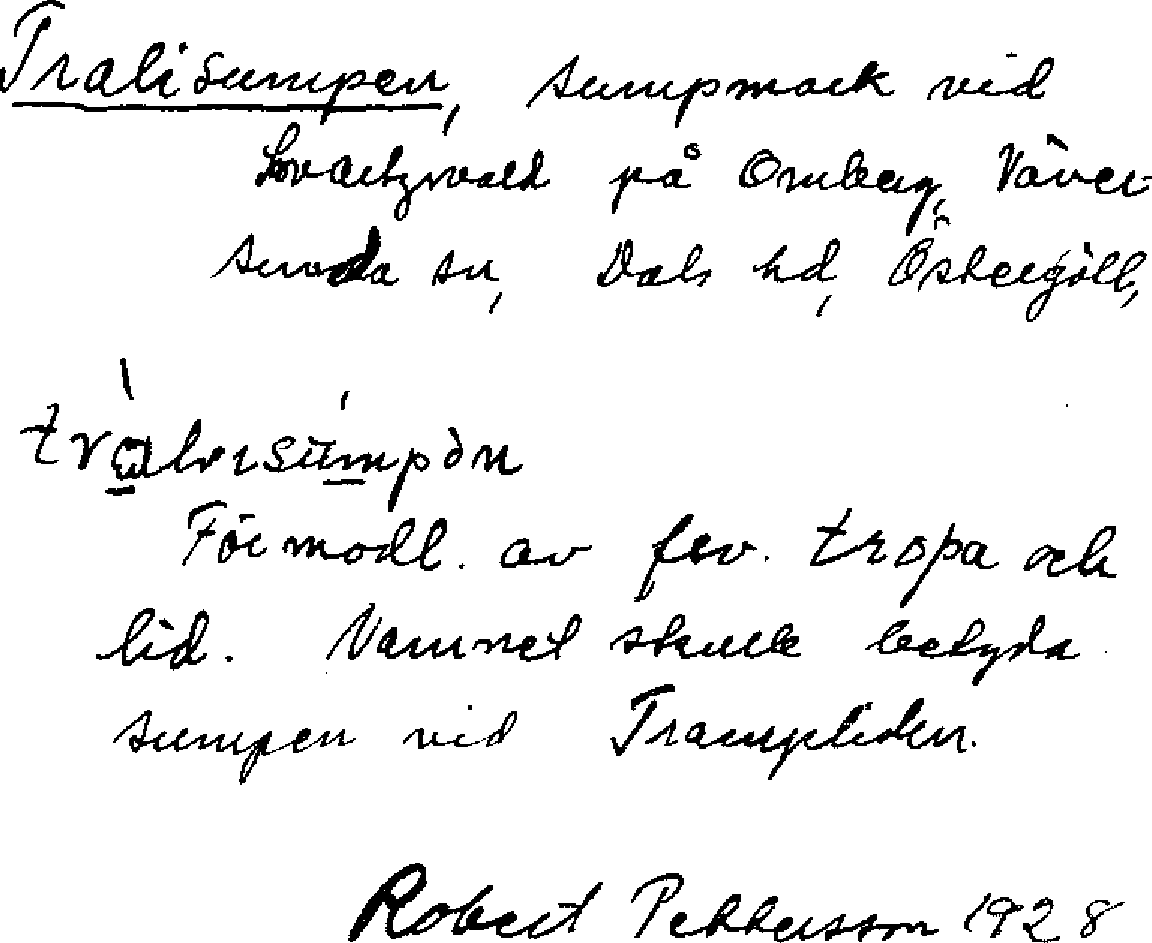 Tralisumpen, sumpmark vid
Svartzwald på Omberg, Väver-
sunda sn, Dals hd, Östergötl,
Förmodl. av fsv. tropa och
lid. Namnet skulle betyda
sumpen vid Trampliden.
Robert Pettersson 1928